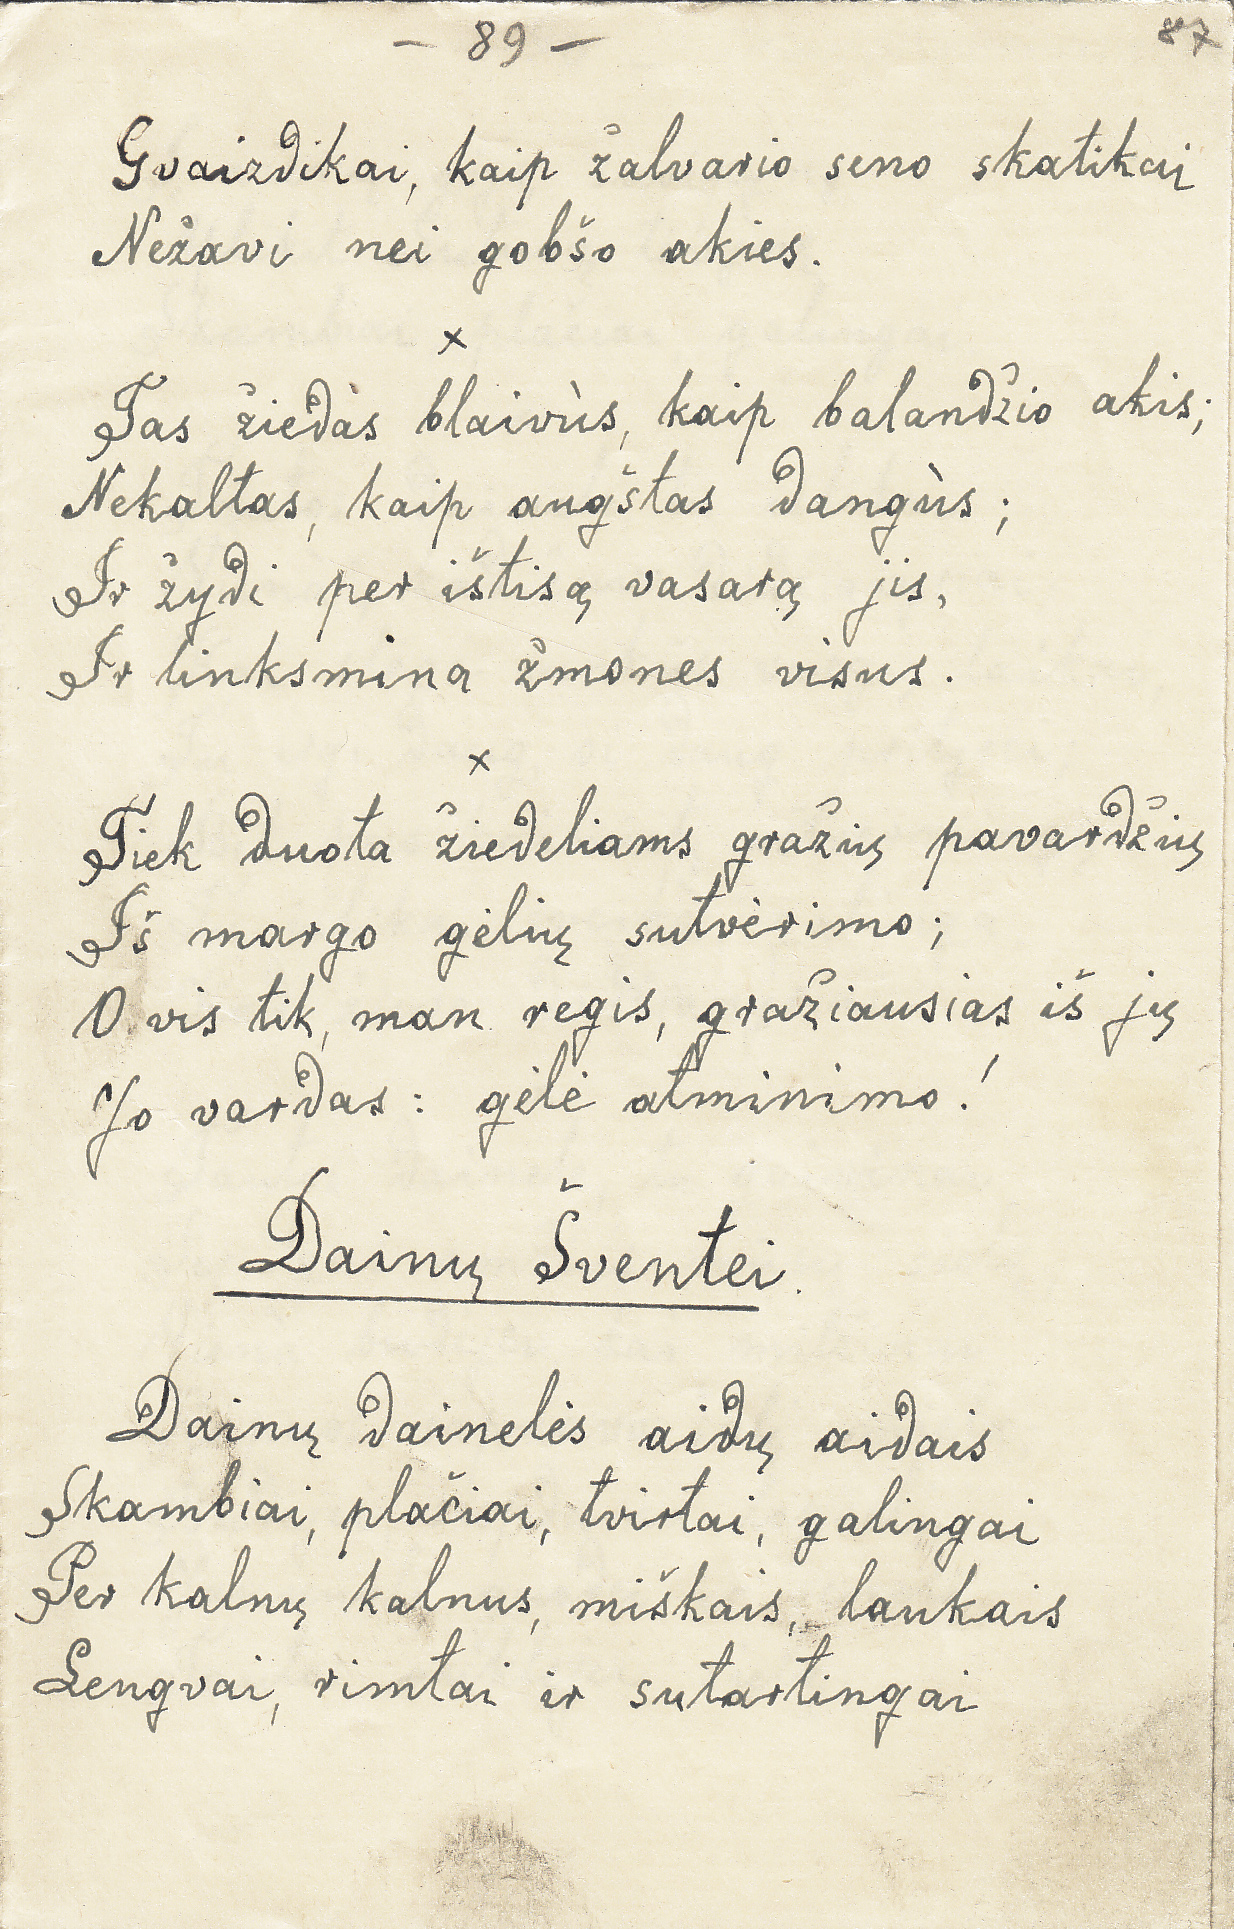 – 89 –
87
Gvaizdikai, kaip žalvario seno skatikai
Nežavi nei gobšo akies.
x
Tas žiedàs blaivùs, kaip balandžio akis;
Nekaltas, kaip augštas dangùs;
Ir žydi per ištisą vasarą jis,
Ir linksmina žmones visus.
x
Tiek duota žiedeliams gražių pavardžių
Iš margo gėlių sutvėrimo;
O vis tik, man regis, gražiausias iš jų
Jo vardas: gėlė atminimo!
Dainų Šventei.
Dainų dainelės aidų aidais
Skambiai, plačiai, tvirtai, galingai
Per kalnų kalnus, miškais, laukais
Lengvai, rimtai ir sutartingai